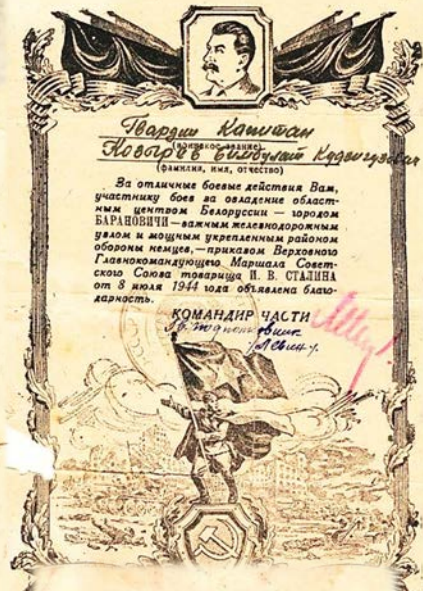 Гвардии Капитан
(воинское звание)
Козырев Бимбулат Кудзигузович
(фамилия, имя, отчество)
За отличные боевые действия Вам,
участнику боев за овладение област-
ным центром Белоруссии — городом
БАРАНОВИЧИ — важным железнодорожным
узлом и мощным укрепленным районом
обороны немцев, — приказом Верховного
Главнокомандующего Маршала Совет-
ского Союза товарища И. В. СТАЛИНА
от 8 июля 1944 года объявлена благо-
дарность.
КОМАНДИР ЧАСТИ
Гв. подполковник
/Левин/